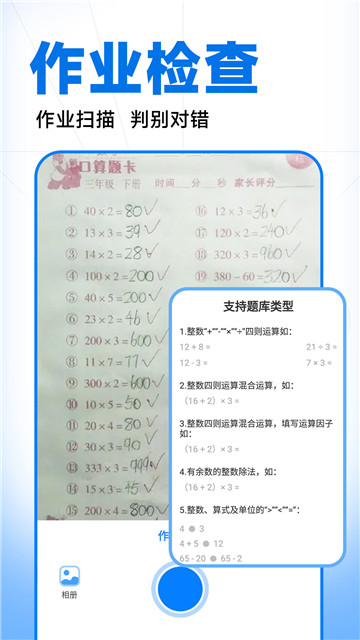 作业检查
作业扫描 判别对错
口算题卡
三年级 下册 时间 分 秒 家长评分
① 40×2=80✓
② 13×3=39✓
③ 14×2=28✓
④ 100×2=200✓
⑤ 40×5=200✓
⑥ 23×2=46✓
⑦ 200×3=600✓
⑧ 11×7=77✓
⑨ 300×2=600✓
⑩ 10×5=50✓
⑪ 20×4=80✓
⑫ 30×3=90✓
⑬ 333×3=999✓
⑭ 15×3=45✓
⑮ 200×4=800✓
⑯ 12×3=36✓
⑰ 120×2=240✓
⑱ 320×3=960✓
⑲ 380-60=320✓
支持题库类型
1.整数“+”“-”“×”“÷”四则运算如:
12+8= 21÷3=
12-3= 7×3=
2.整数四则运算混合运算，如:
（16+2）×3=
3.整数四则运算混合运算，填写运算因子
如:
（16+2）×3=
4.有余数的整数除法，如:
（16+2）×3=
5.整数、算式及单位的“>”“<”“=”:
4 ● 3
4+5 ● 12
65-20 ● 65-2
作
相册